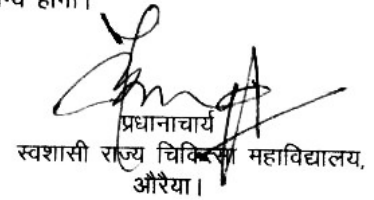 होगा।
प्रधानाचार्य
स्वशासी राज्य चिकित्सा महाविद्यालय,
औरैया।